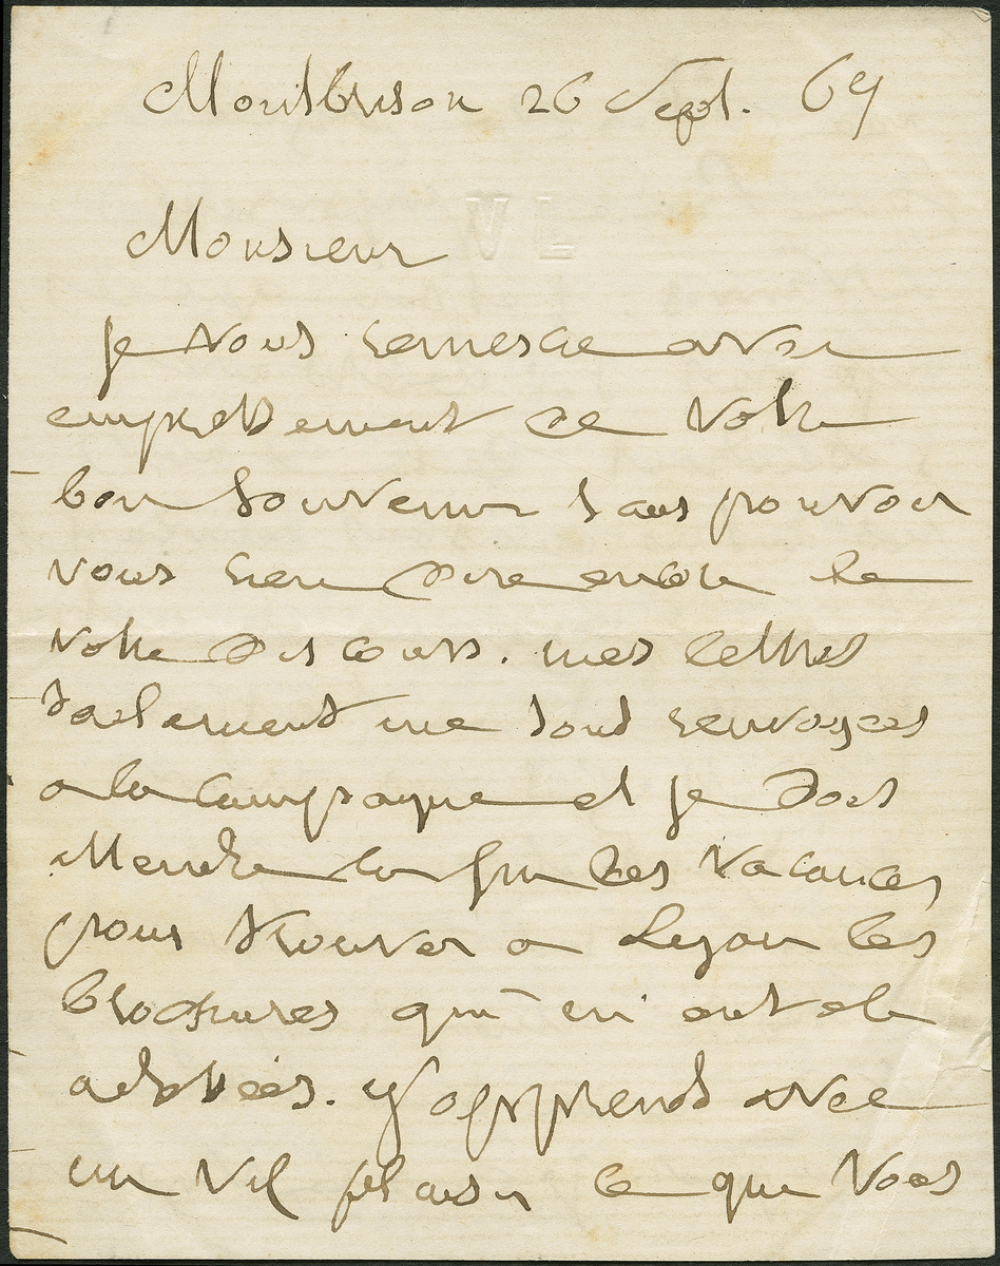 Montbrison 26 Sept. 69
VL
Monsieur
je vous remercie avec
empressement de votre
bon souvenir sans pouvoir
vous rien dire encore de
votre discours. mes lettres
seulement me sont renvoyees
a la campagne et je dois
attendre la fin des vacances
pour trouver a Lyon les
brochures qui m'ont ete
adressées. J'apprends avec
un vif plaisir ce que vous